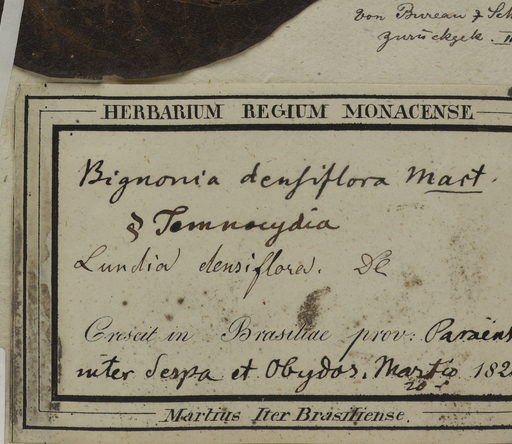 von Bureau & Sch
zurückgek.
HERBARIUM REGIUM MONACENSE
Bignonia densiflora Mart.
§ Temnocydia
Lundia densiflora. DC
Crescit in Brasiliae prov: Paraëns
inter Serpa et Obydos. Martio 182
20
Martius Iter Brasiliense.